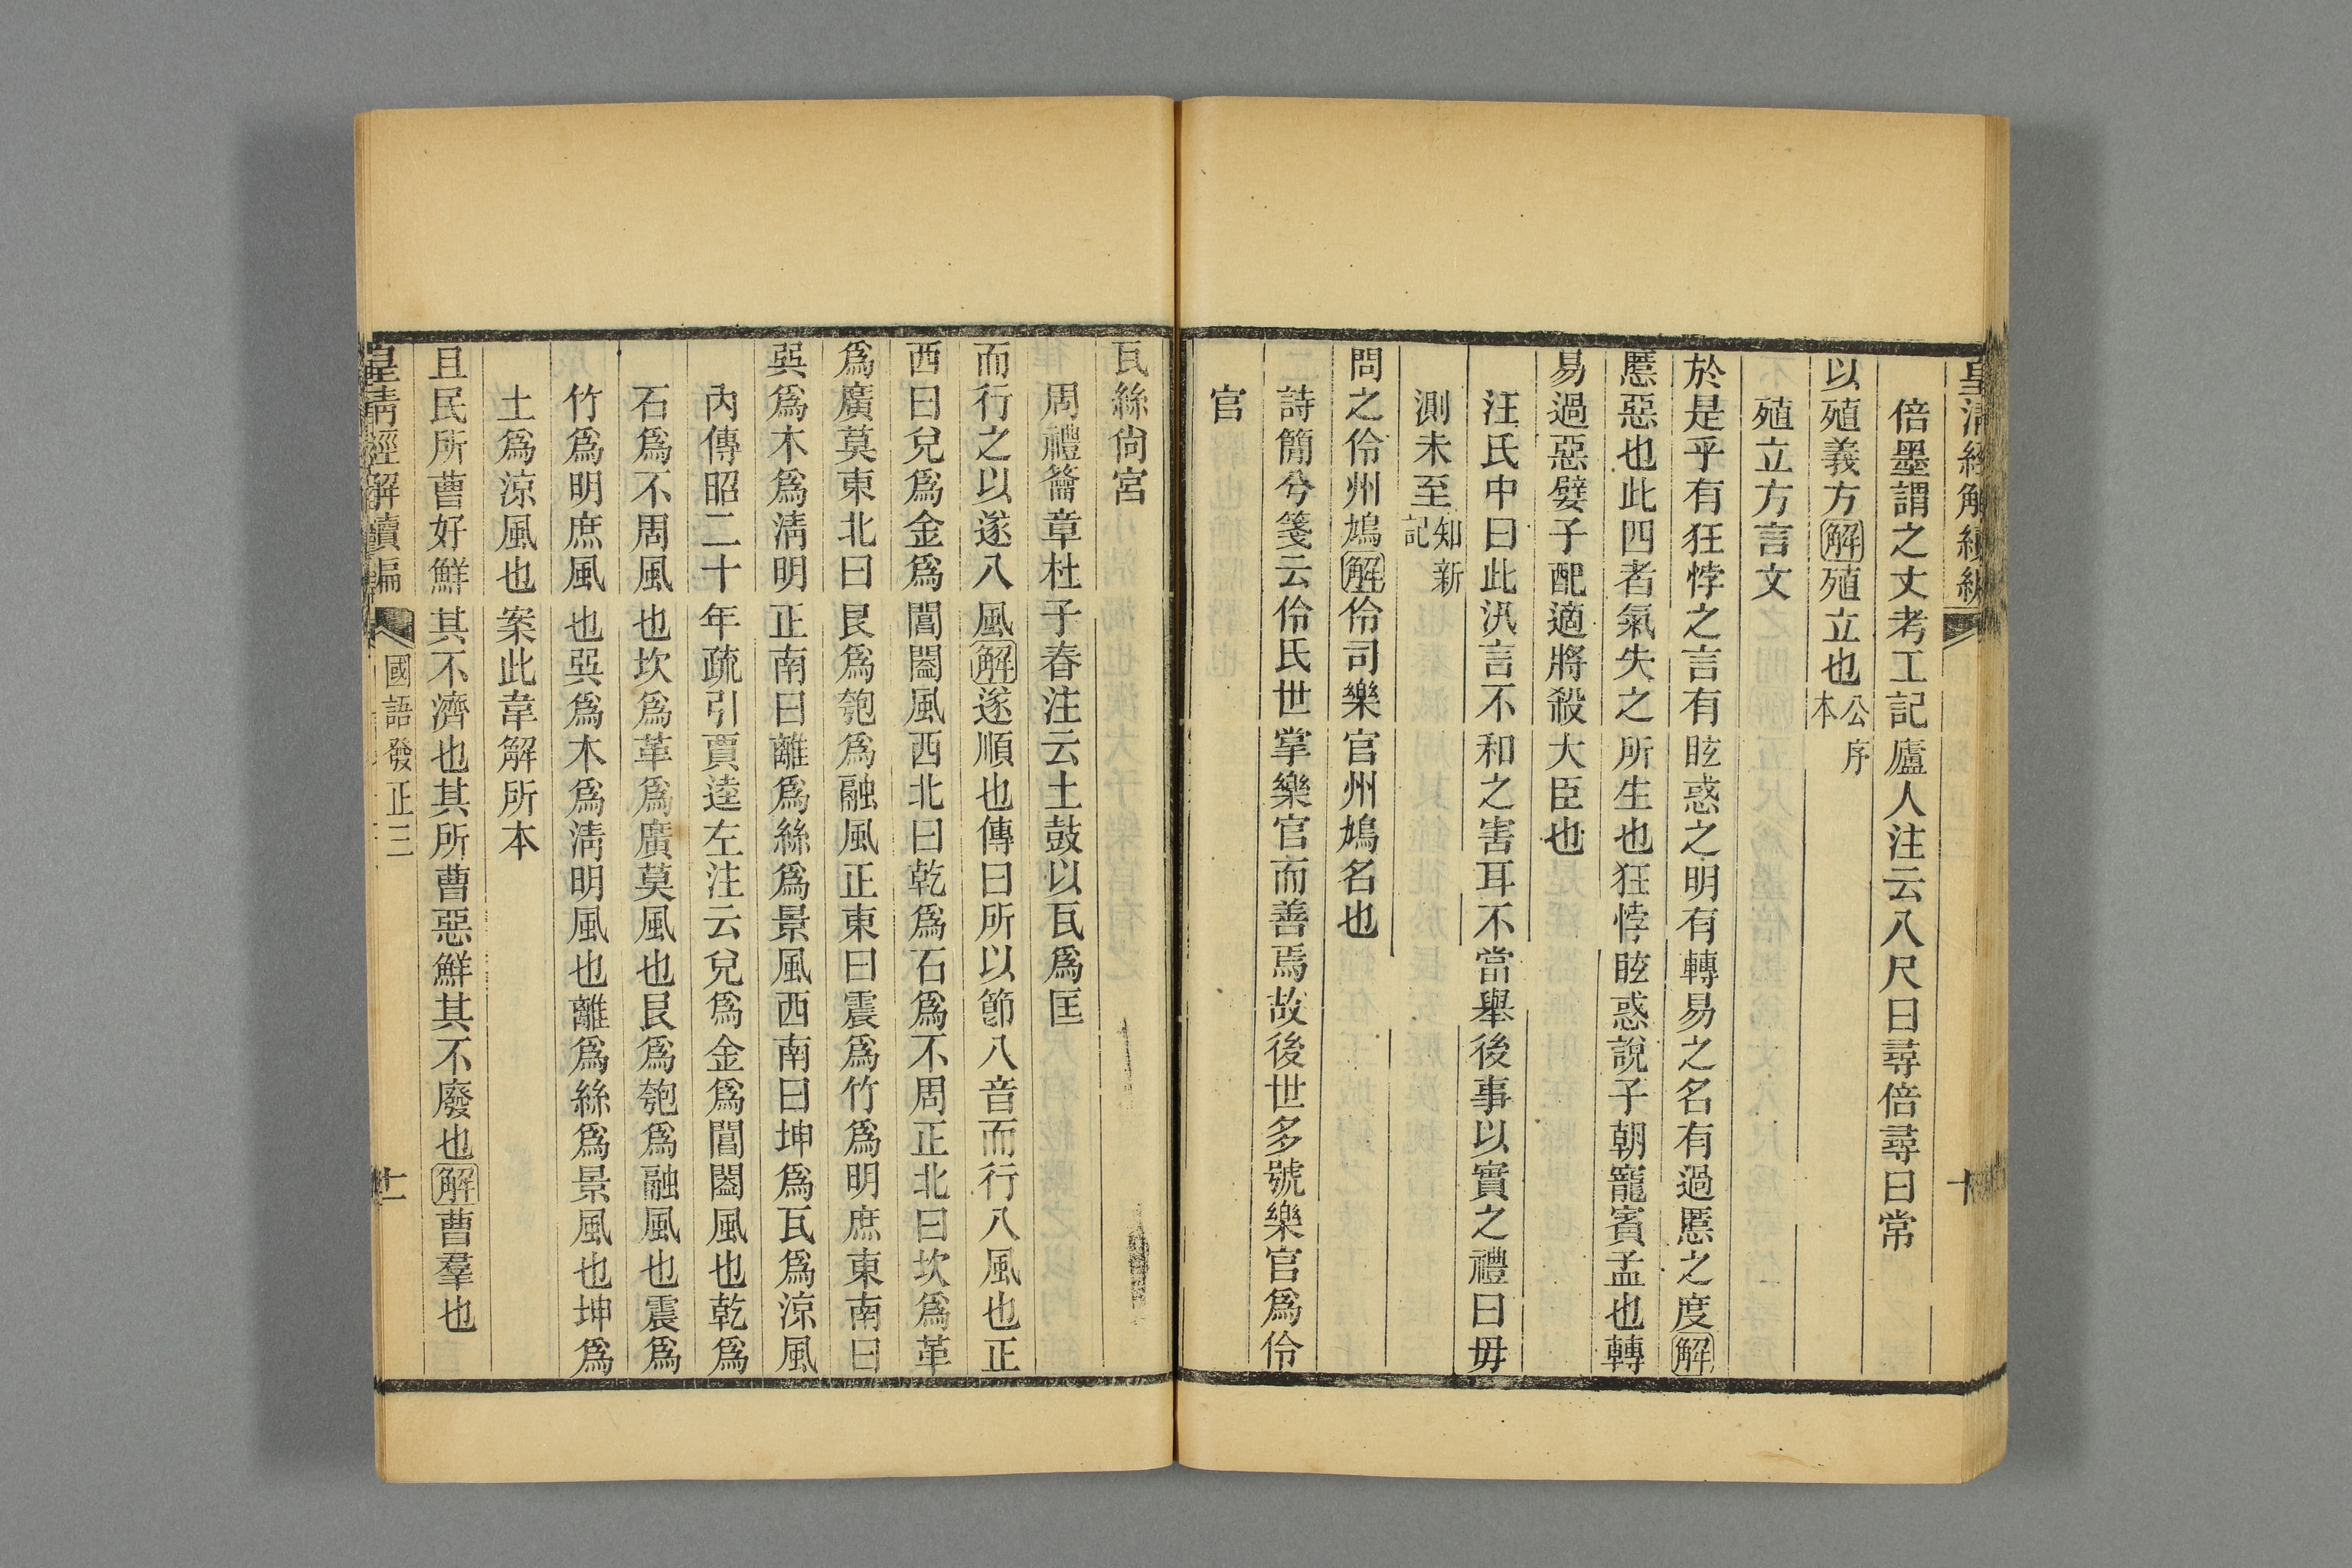 皇清經解續編
十
倍墨謂之丈考工記廬人注云八尺曰尋倍尋曰常
以殖義方解殖立也公序本
殖立方言文
於是乎有狂悖之言有眩惑之明有轉易之名有過慝之度解
慝惡也此四者氣失之所生也狂悖眩惑說子朝寵賓孟也轉
易過惡嬖子配適將殺大臣也
汪氏中曰此汎言不和之害耳不當舉後事以實之禮曰毋
測未至知新記
問之伶州鳩解伶司樂官州鳩名也
詩簡兮箋云伶氏世掌樂官而善焉故後世多號樂官爲伶
官
瓦絲尙宮
周禮籥章杜子春注云土鼓以瓦爲匡
而行之以遂八風解遂順也傳曰所以節八音而行八風也正
西曰兌爲金爲閶闔風西北曰乾爲石爲不周正北曰坎爲革
爲廣莫東北曰艮爲匏爲融風正東曰震爲竹爲明庶東南曰
巽爲木爲淸明正南曰離爲絲爲景風西南曰坤爲瓦爲涼風
內傳昭二十年疏引賈逵左注云兌爲金爲閶闔風也乾爲
石爲不周風也坎爲革爲廣莫風也艮爲匏爲融風也震爲
竹爲明庶風也巽爲木爲淸明風也離爲絲爲景風也坤爲
土爲涼風也案此韋解所本
且民所曹好鮮其不濟也其所曹惡鮮其不廢也解曹羣也
皇淸經解續編
國語發正三
十一